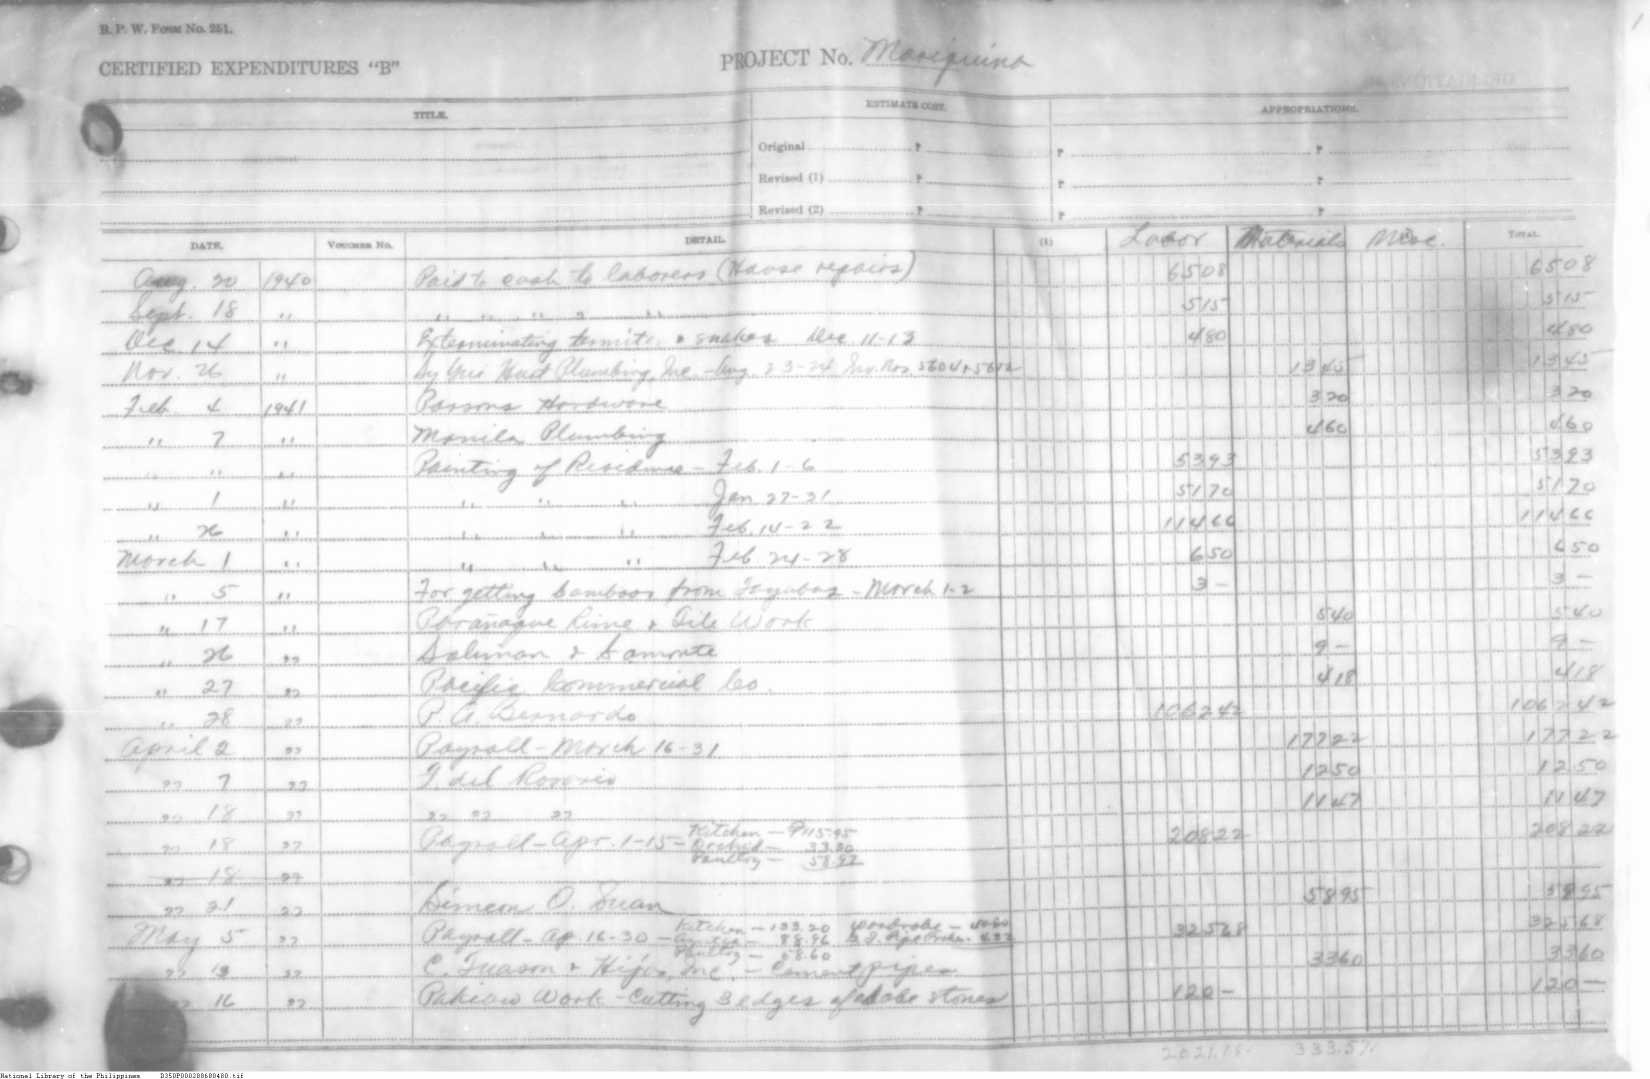 B. P. W. Form No. 251.
CERTIFIED EXPENDITURES "B"
PROJECT No. Mariquina
TITLE. ESTIMATE COST. APPROPRIATIONS.
Original ₱ ₱ ₱
Revised (1) ₱ ₱ ₱
Revised (2) ₱ ₱ ₱
DATE. VOUCHER No. DETAIL. (1) Labor Materials Misc. TOTAL
Aug. 20 1940 Paid to cash to laborers (House repairs) 6508 6508
Sept. 18 " " " " " " 515 515
Dec 14 " Exterminating termites & snakes Dec. 11-13 480 480
Nov. 26 " Plumbing, Inc. - Aug. 23-24 Inv. Nos. 5604 & 5612 1345 1345
Feb 4 1941 Parsons Hardware 320 320
" 7 " Manila Plumbing 460 460
" " Painting of Residence - Feb. 1-6 5393 5393
" 1 " " " " Jan 27-31 5170 5170
" 26 " " " " Feb. 14-22 11466 11466
March 1 " " " " Feb. 24-28 650 650
" 5 " For getting bamboos from Tayabas - March 1-2 3 - 3 -
" 17 " Parañaque Lime & Tile Work 540 540
" 26 " Soliman & Samonte 9 - 9 -
" 27 " Pacific Commercial Co. 418 418
" 28 " P. A. Bernardo 106242 106242
April 2 " Payroll - March 16-31 17722 17722
" 7 " T. del Rosario 1250 1250
" 18 " " " " 1147 1147
" 18 " Payroll - Apr. 1-15 - Kitchen - ₱115.95 20822 20822
Orchid - 33.30
Poultry - 58.97
" 18 "
" 21 " Simeon O. Suan 5895 5895
May 5 " Payroll - Ap. 16-30 - Kitchen - 133.20 Wardrobe - 32568 32568
88.96
Poultry - 58.60
" 13 " C. Tuason & Hijos, Inc. - Cement pipes 3360 3360
" 16 " Pakiaw Work - Cutting 3 edges of adobe stones 120 - 120 -
2021.18 333.57
National Library of the Philippines D350P000200600480.tif